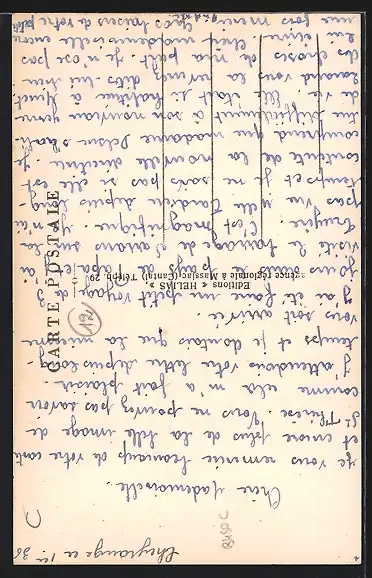 Cheylanze le 1er 36
Chère Mademoiselle.
je vous remercie beaucoup de votre carte
et encore plus de la belle image de
Ste Thérèse. Vous ne pouvez pas savoir
comme cela m'a fait plaisir.
J'attendais votre lettre depuis long
temps et je doutais que la mienne
vous soit arrivée.
j'ai été faire un petit voyage de 3
jours dans le pays de Papa et j'ai
visité le barrage de Sarrans sur la
Truyère. C'est magnifique. Je n'ai
pas vu Mlle Tardieu depuis long-
temps et je ne sais pas si elle est
contente de la nouvelle directrice. Je
comprend que madame
difficilement à son nouveau genre
de vie. Elle était si habituée à
Quand vous la verrez dites lui bien
des choses de ma part. Je n'ose pas
lui écrire
chère mademoiselle encore
une fois merci
gros baisers de votre petite
CARTE POSTALE
Editions « HELIAS »
agence régionale à Massiac (Cantal) Téléph. 29
194
C